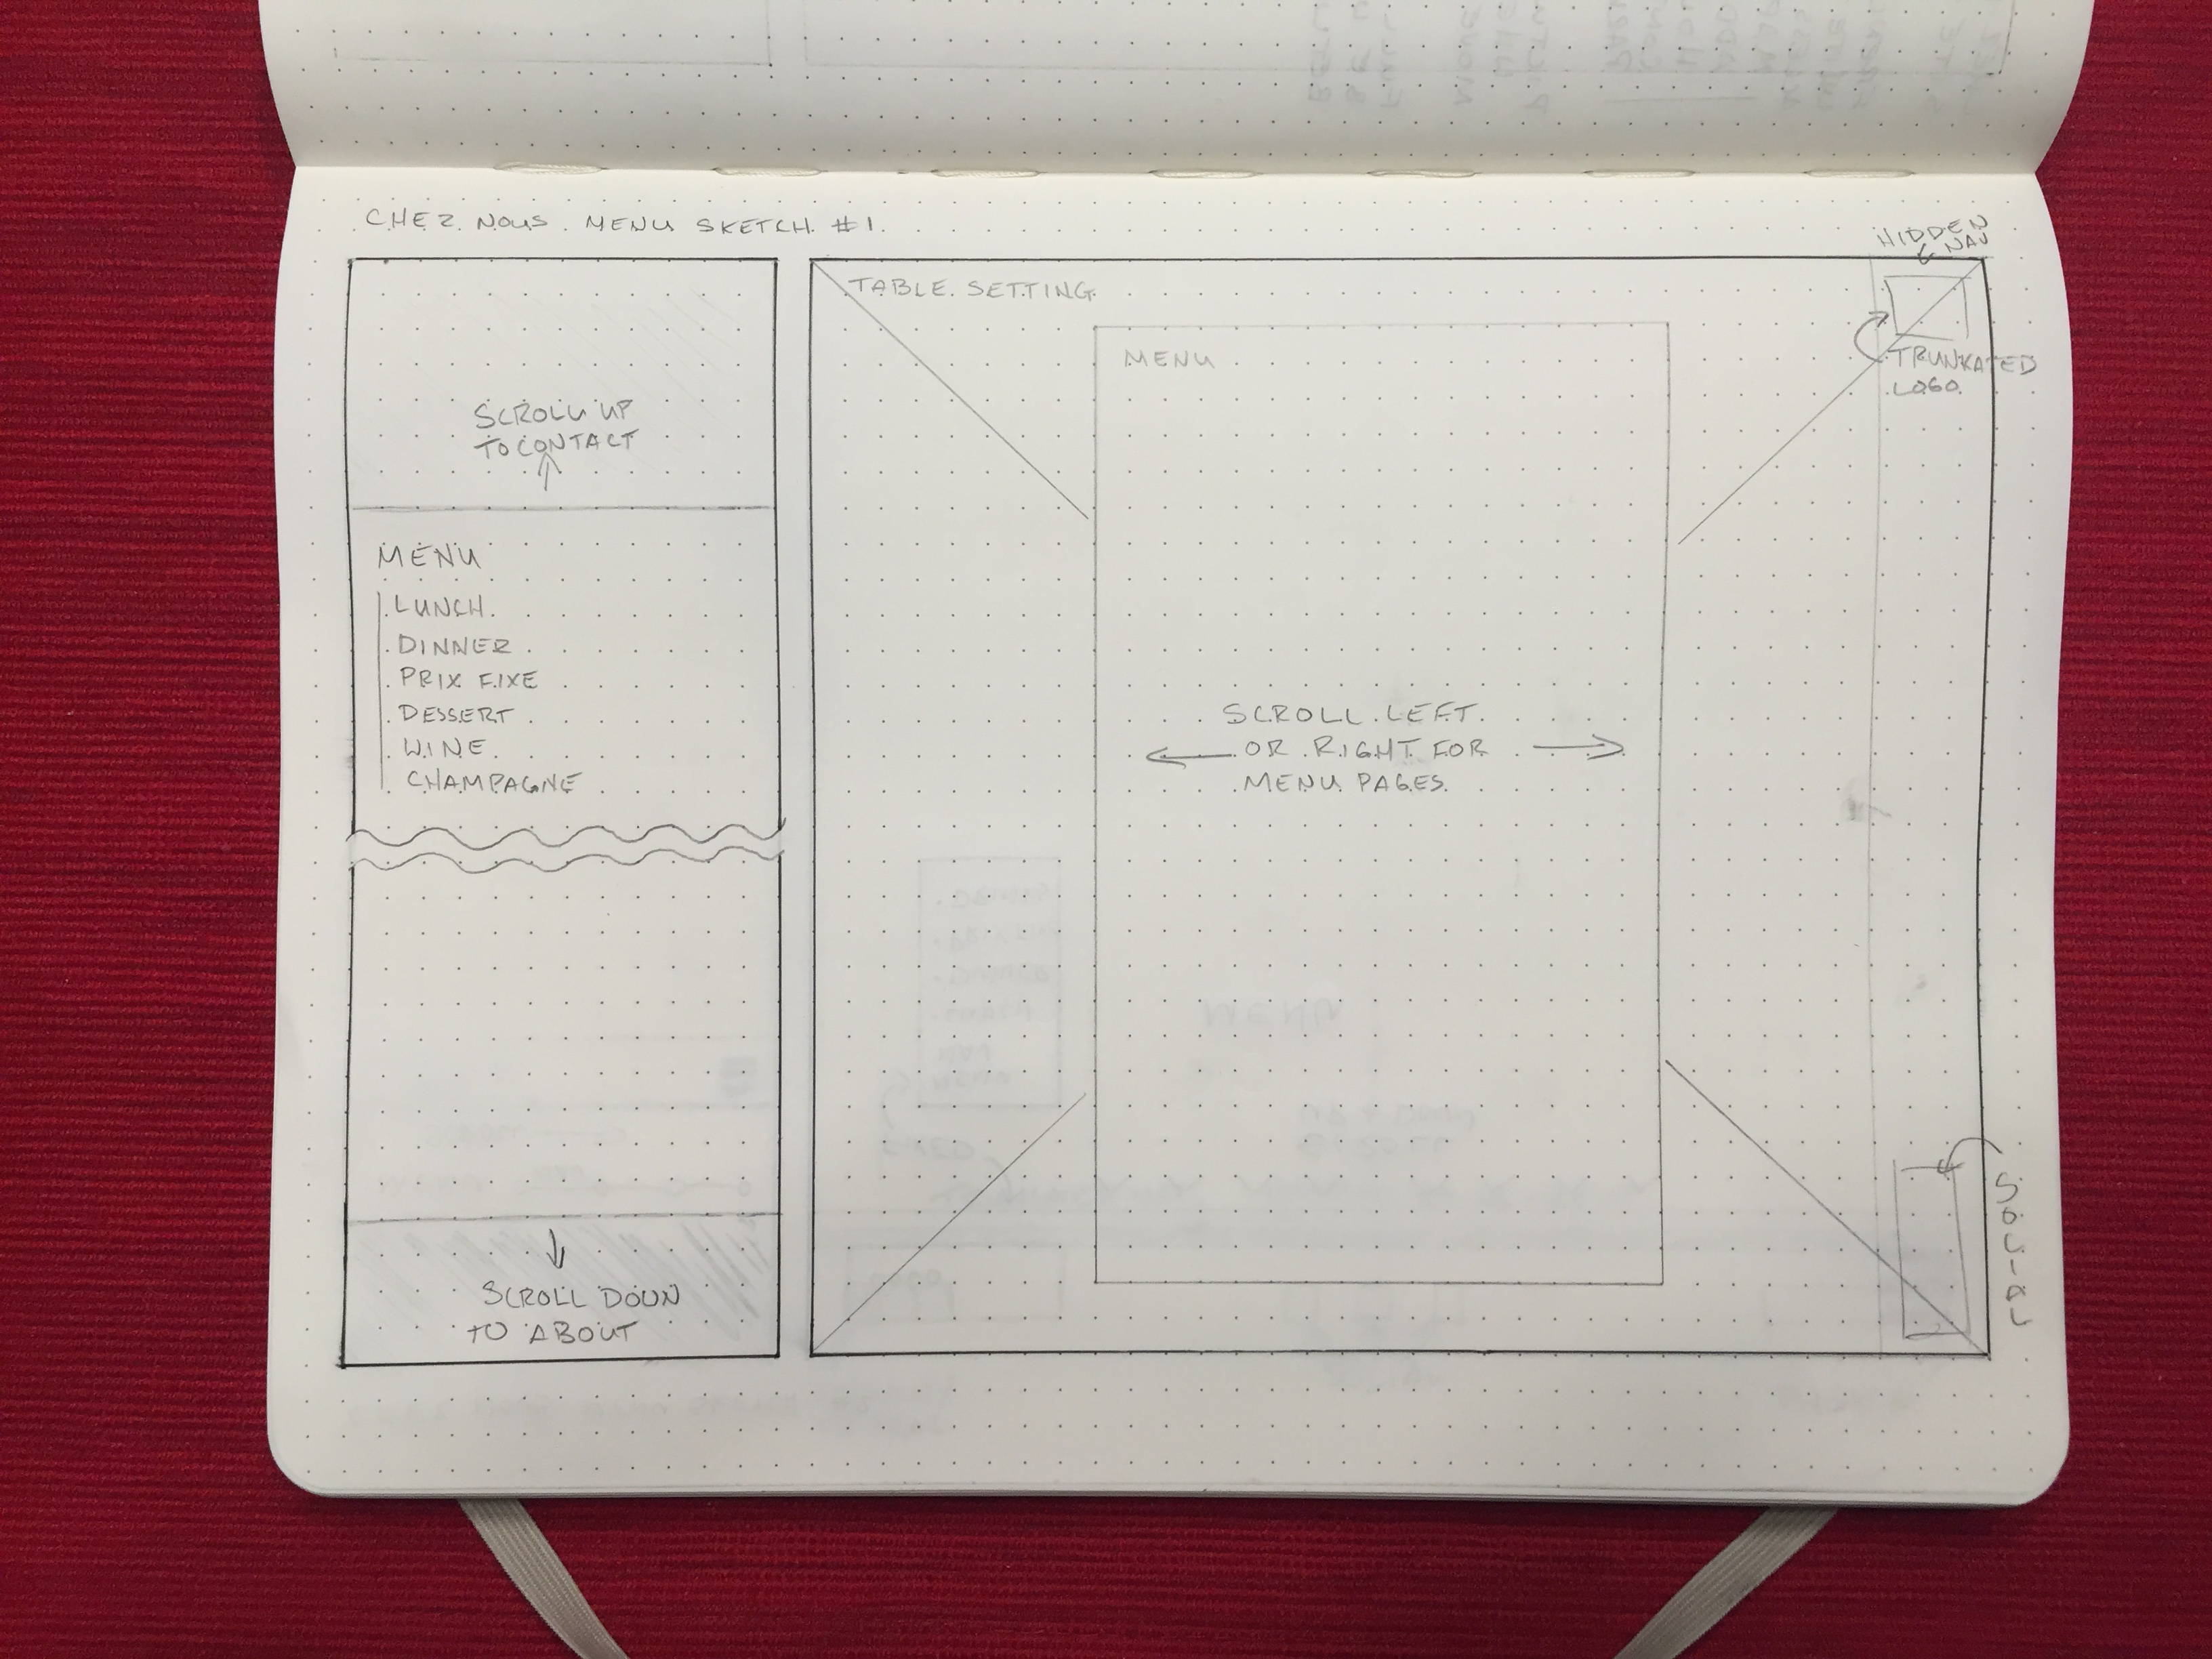 CHEZ NOUS. MENU SKETCH #1.
SCROLL UP
TO CONTACT
MENU
LUNCH
DINNER
PRIX FIXE
DESSERT
WINE
CHAMPAGNE
SCROLL DOWN
TO ABOUT
TABLE SETTING
MENU
SCROLL LEFT
OR RIGHT FOR
MENU PAGES
HIDDEN
NAV
TRUNKATED
LOGO
SOCIAL